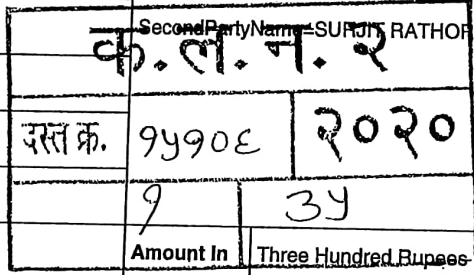 SecondPartyName=SURJIT RATHOR
क. ल. न. २
दस्त क्र. १५१०६ २०२०
१ ३५
Amount In Three Hundred Rupees